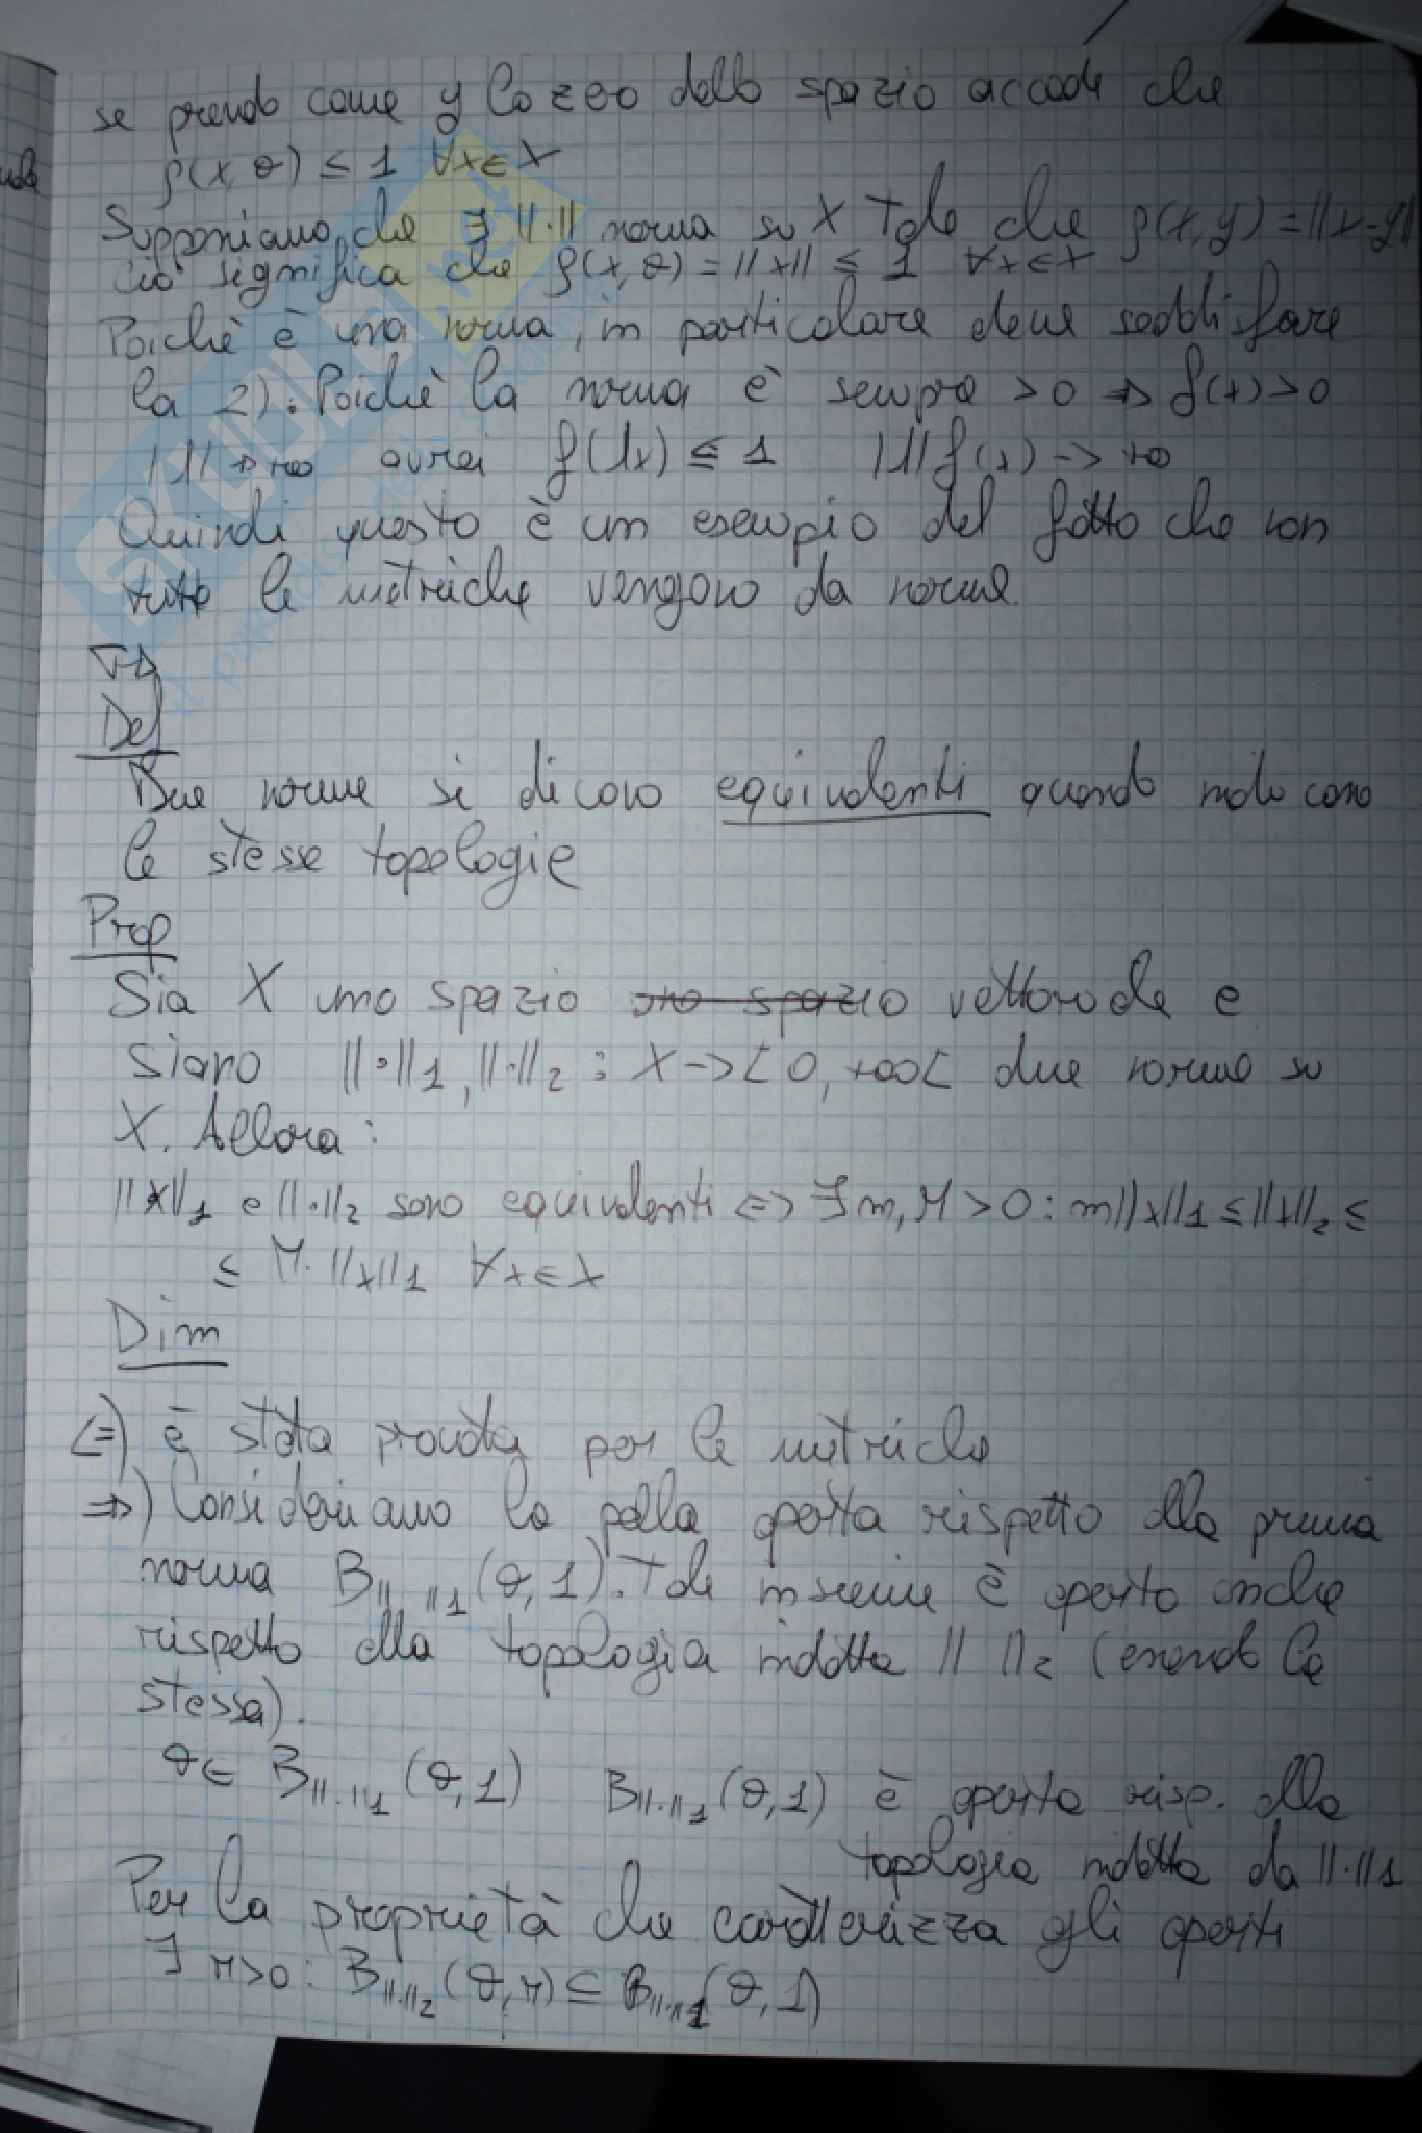 se prendo come y lo zero dello spazio accade che
ρ(x,θ) ≤ 1 ∀x∈X
Supponiamo che ∃ ||·|| norma su X tale che ρ(x,y) = ||x-y||
Ciò significa che ρ(x,θ) = ||x|| ≤ 1 ∀x∈X
Poiché è una norma, in particolare deve soddisfare
la 2). Poiché la norma è sempre >0 ⇒ f(x)>0
|λ|→+∞ avrei f(λx) ≤ 1 |λ|f(x) → +∞
Quindi questo è un esempio del fatto che non
tutte le metriche vengono da norme.
Def
Due norme si dicono equivalenti quando inducono
le stesse topologie
Prop
Sia X uno spazio uno spazio vettoriale e
siano ||·||1, ||·||2 : X → [0,+∞[ due norme su
X. Allora:
||x||1 e ||·||2 sono equivalenti ⇔ ∃ m, M > 0 : m||x||1 ≤ ||x||2 ≤
≤ M·||x||1 ∀x∈X
Dim
⇐) è stata provata per le metriche
⇒) Consideriamo la palla aperta rispetto alla prima
norma B|| ||1 (θ,1). Tale insieme è aperto anche
rispetto alla topologia indotta || ||2 (essendo le
stesse).
θ∈ B||·||1 (θ,1) B||·||1 (θ,1) è aperta risp. alla
topologia indotta da ||·||1
Per la proprietà che caratterizza gli aperti
∃ r>0 : B||·||2 (θ,r) ⊆ B||·||1 (θ,1)
SKUOLA.net